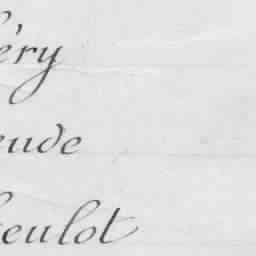 éry
eude
eulot